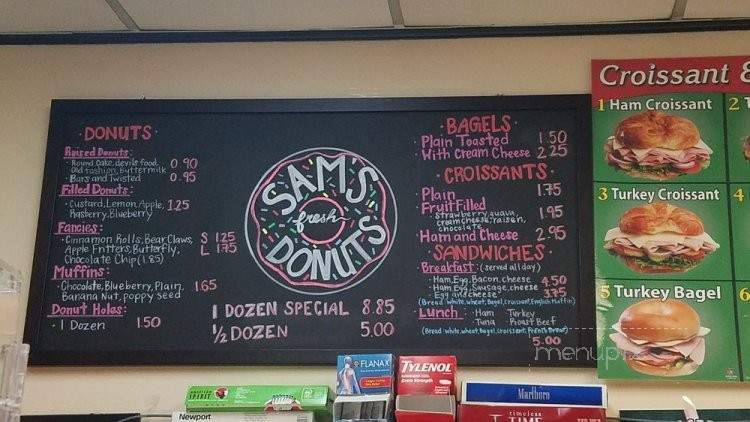 DONUTS
Raised Donuts:
Round Cake, devils food,
Old fashion, Buttermilk 0.90
Bars and Twisted 0.95
Filled Donuts:
Custard, Lemon, Apple, 1.25
Rasberry, Blueberry
Fancies:
Cinnamon Rolls, Bear Claws, S 1.25
Apple Fritters, Butterfly, L 1.75
Chocolate Chip (1.85)
Muffins:
Chocolate, Blueberry, Plain, 1.65
Banana Nut, poppy seed
Donut Holes:
1 Dozen 1.50
SAM'S
fresh
DONUTS
1 DOZEN SPECIAL 8.85
1/2 DOZEN 5.00
BAGELS
Plain Toasted 1.50
With Cream Cheese 2.25
CROISSANTS
Plain 1.75
Fruit Filled
Strawberry, guava, 1.95
creamcheese, raisen,
chocolate
Ham and Cheese 2.95
SANDWICHES
Breakfast: (served all day)
Ham, Egg, Bacon, cheese 4.50
Ham, Egg, Sausage, cheese
Egg and cheese
(Bread: white, wheat, Bagel, Croissant, English Muffin)
Lunch: Ham Turkey
Tuna Roast Beef
(Bread: white, wheat, Bagel, Croissant, French Bread)
5.00
Croissant &
1 Ham Croissant
2
3 Turkey Croissant
4
5 Turkey Bagel
menupix
SPIRIT
Newport
FLANAX
TYLENOL
Extra Strength
Marlboro
timeless
TIME